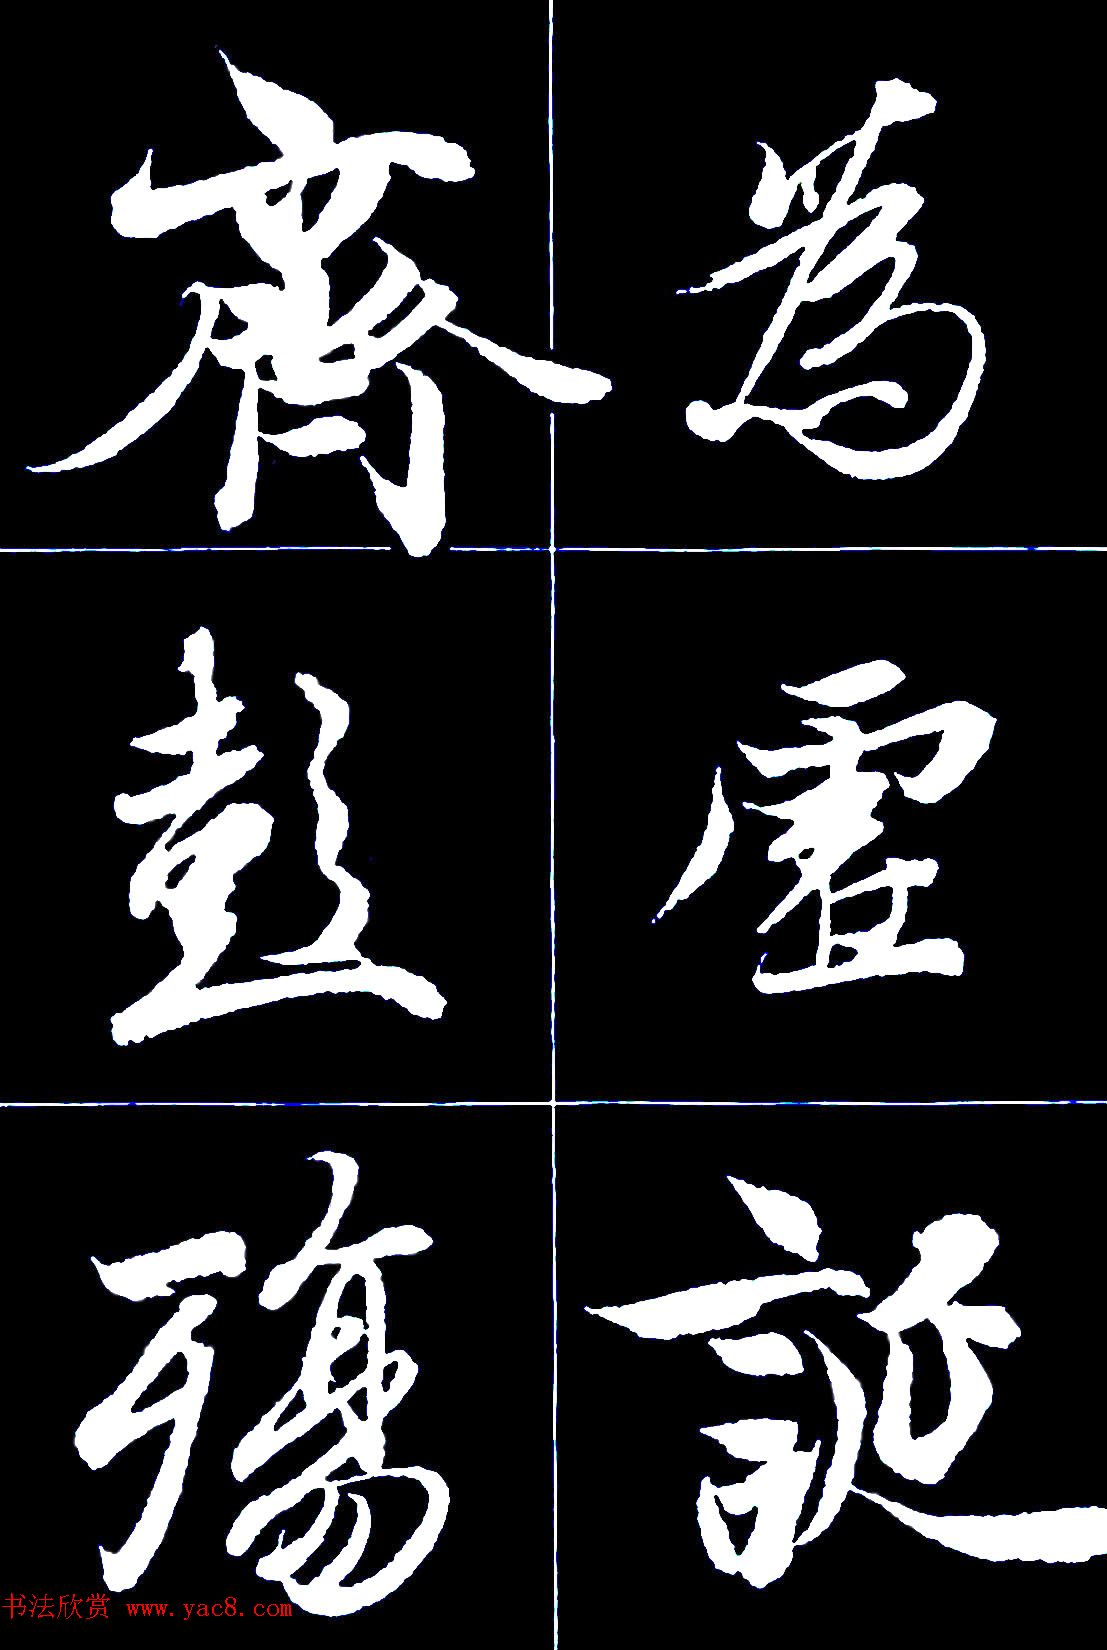 為虛誕
齊彭殤
书法欣赏 www.yac8.com